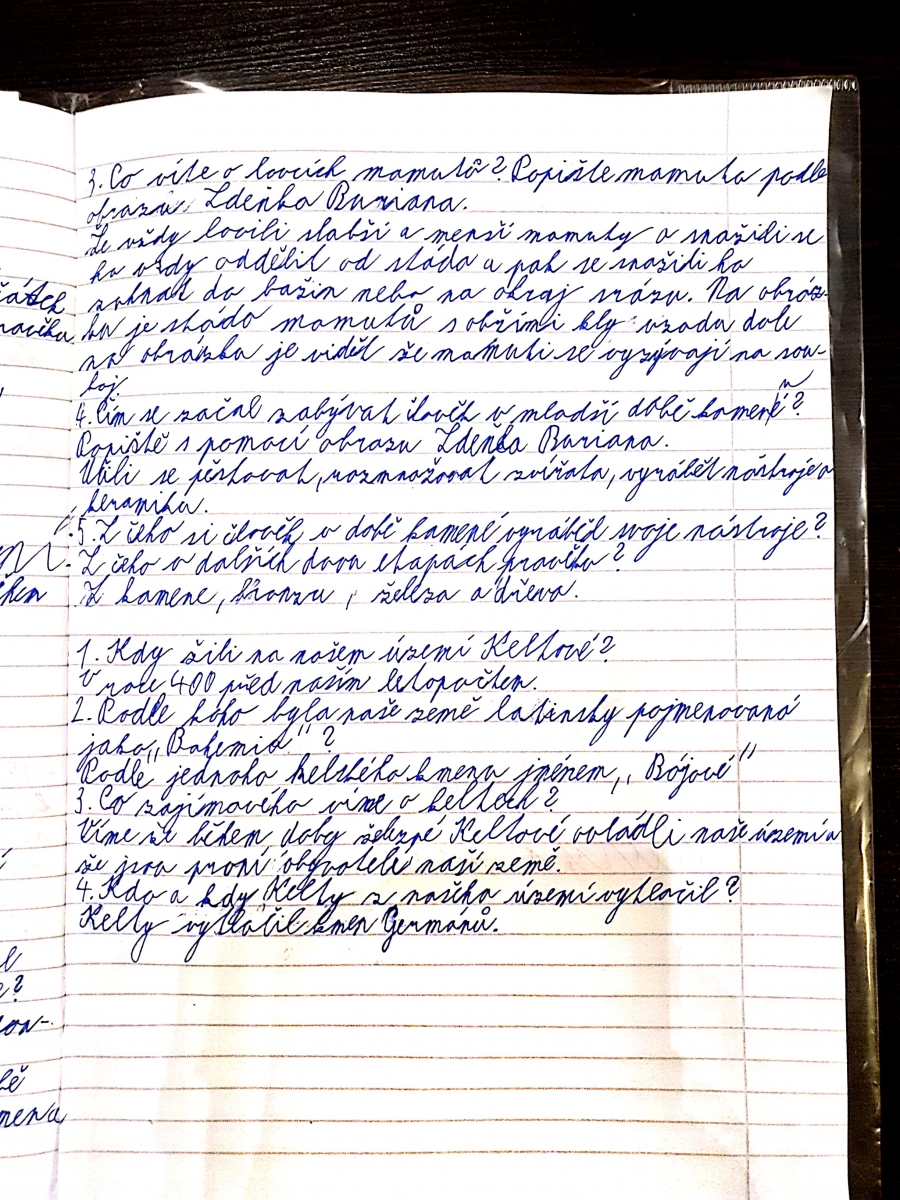 3. Co víte o lovcích mamutů? Popište mamuta podle
obrazu Zdeňka Buriana.
Že vždy lovili slabší a menší mamuty a snažili se
ho vždy oddělit od stáda a pak se snažili ho
zahnat do bažin nebo na okraj srázu. Na obráz-
ku je stádo mamutů s obřími kly vzadu dole
na obrázku je vidět že mamuti se vyzývají na sou-
boj
4. Čím se začal zabývat člověk v mladší době kamené?
Popiště s pomocí obrazu Zdeňka Buriana.
Učili se pěstovat, rozmnožovat zvířata, vyrábět nástroje a
keramiku.
5. Z čeho si člověk v době kamené vyráběl svoje nástroje?
Z čeho v dalších dvou etapách pravěku?
Z kamene, bronzu, železa a dřeva.
1. Kdy žili na našem území Keltové?
V roce 400 před naším letopočtem.
2. Podle koho byla naše země latinsky pojmenovaná
jako „Bohemia" ?
Podle jednoho keltského kmenu jménem „Bójové"
3. Co zajímavého víme o keltech?
Víme že během doby železné Keltové ovládli naše území a
že jsou první obyvatelé naší země.
4. Kdo a kdy Kelty z našeho území vytlačil?
Kelty vytlačil kmen Germánů.